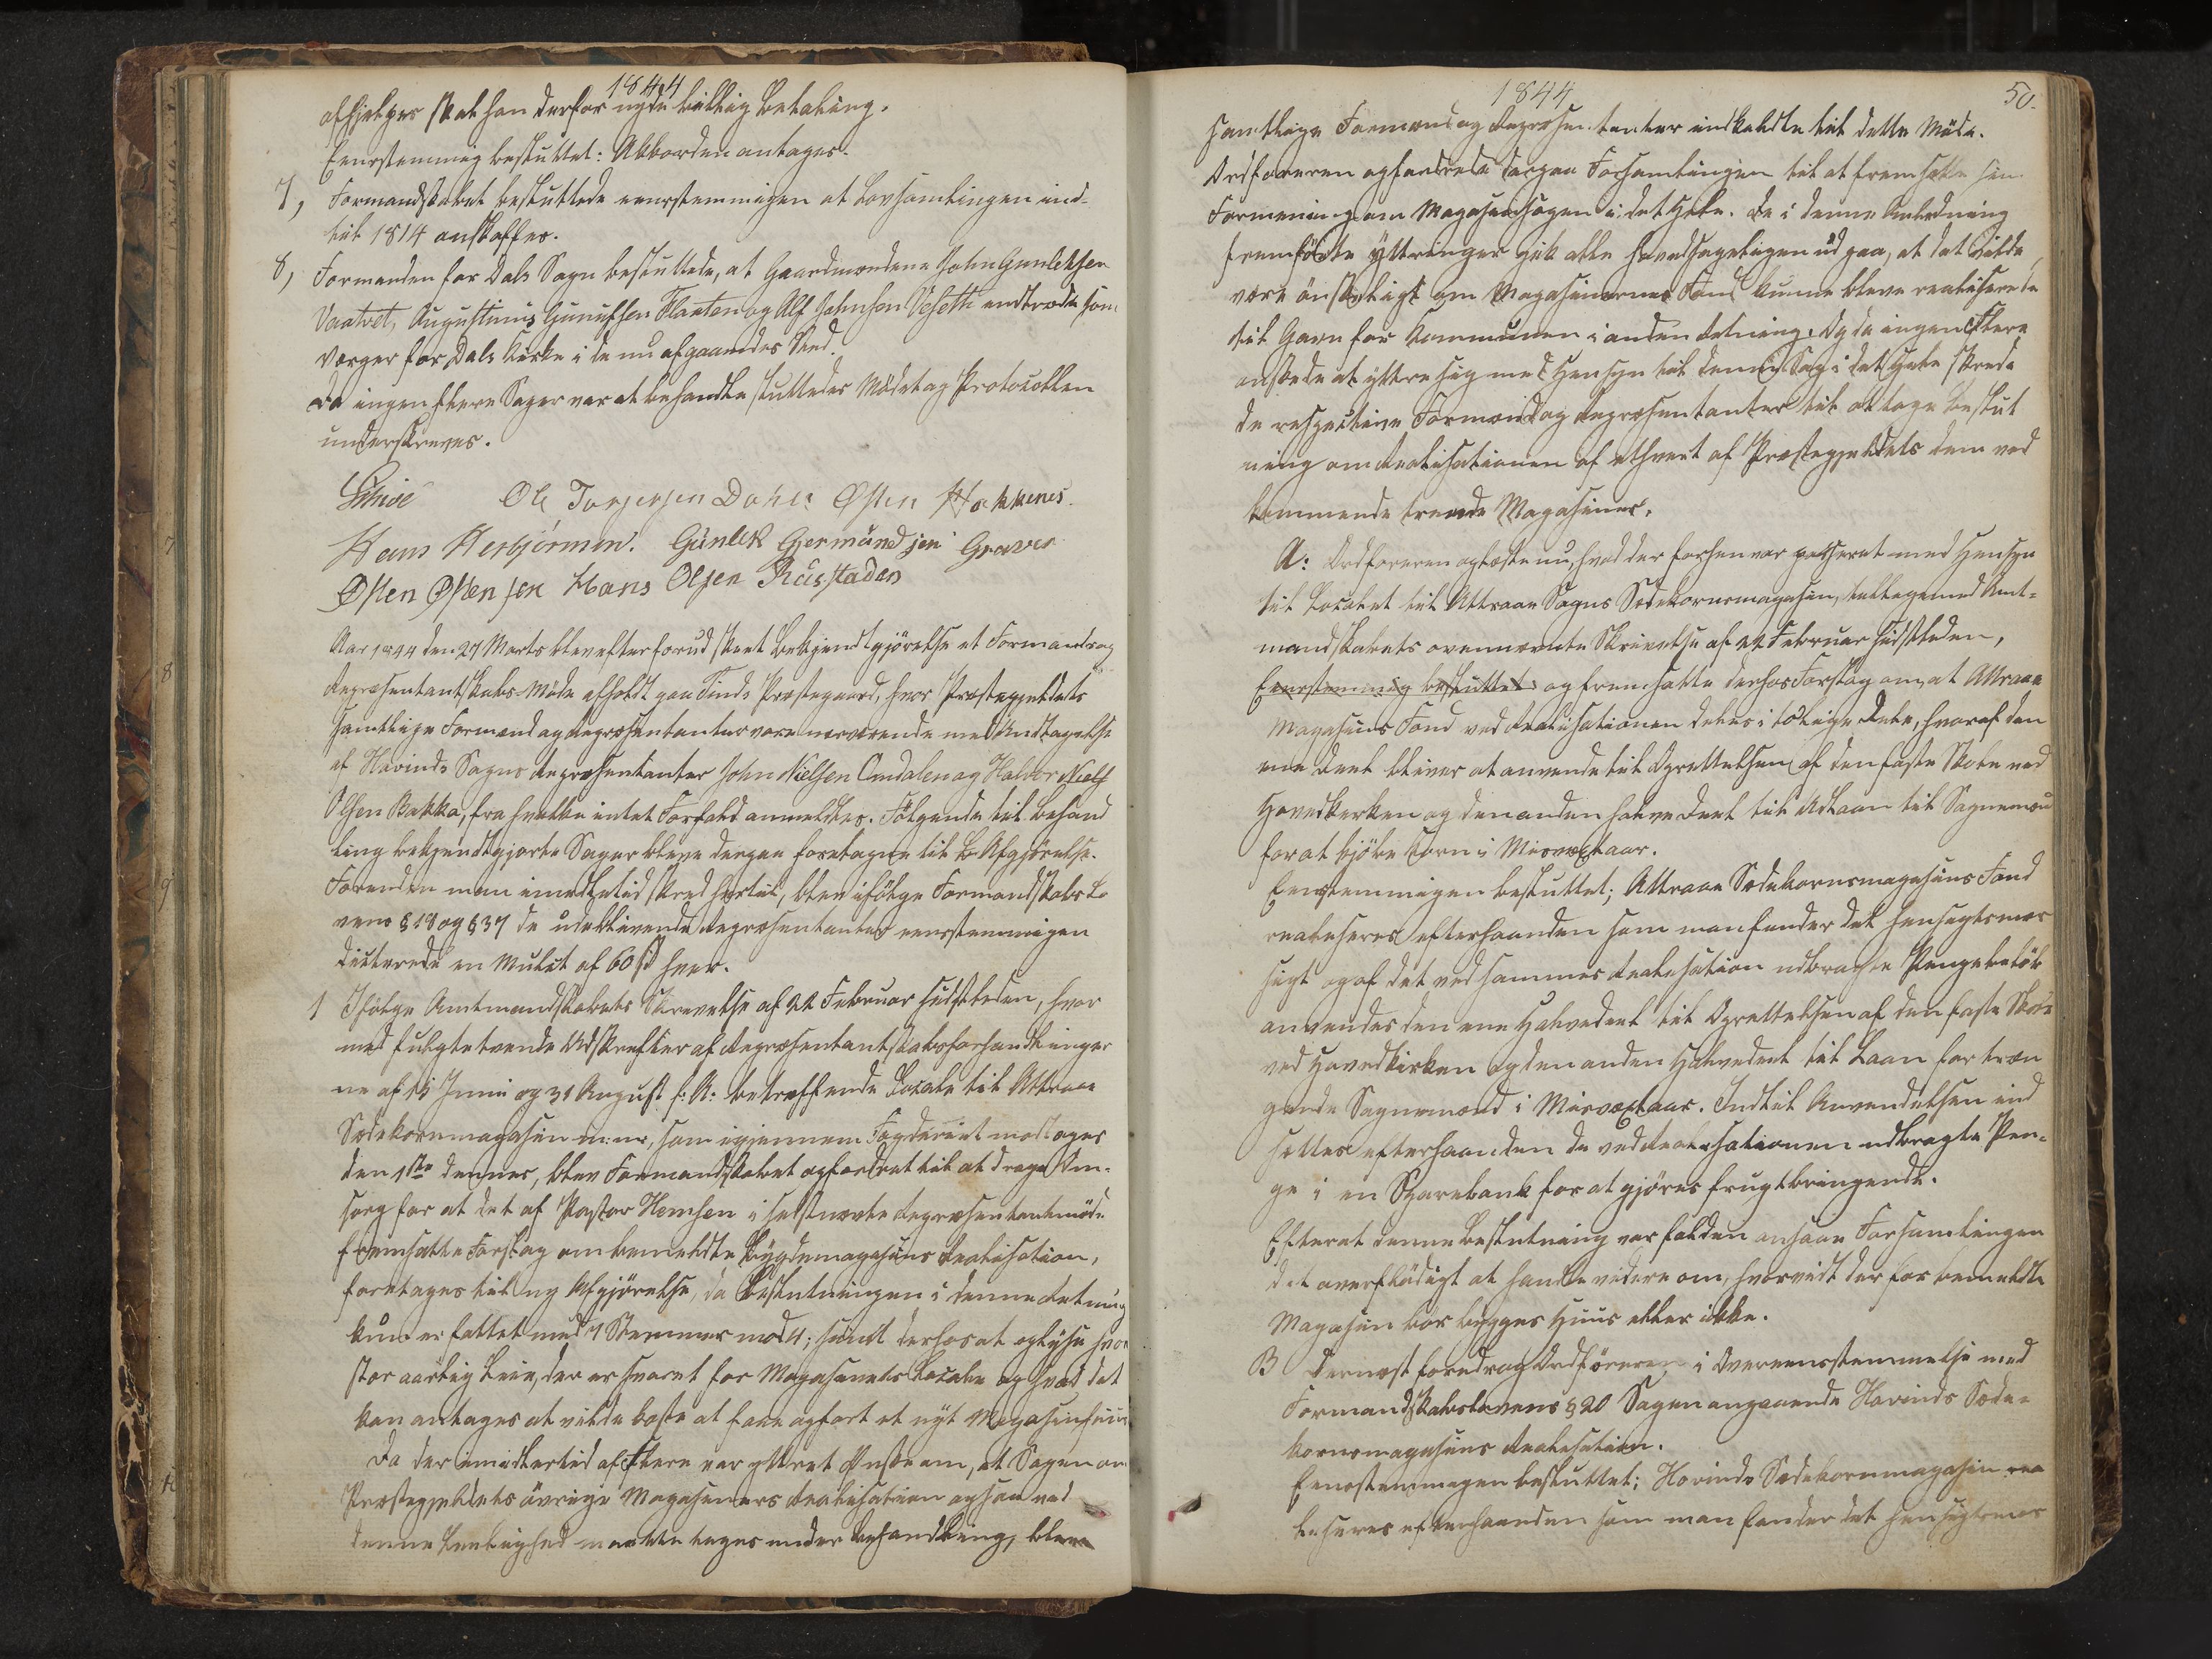 1844
afhjelpes skal han derfor nyde billig Betaling.
Eenstemmig besluttet: Akkorden antages.
7, Formandskabet besluttede eenstemmigen at Lovsamlingen ind-
til 1814 anskaffes.
8, Formænden for Dals Sogn besluttede, at Gaardmændene John Gunleksen
Vaatvet, Augustinus Gunufsen Flaaten og Alf Johnsen Veseth indtræde som
Værger for Dals Kirke i de nu afgaaendes Sted.
Da ingen flere Sager var at behandle sluttedes Mødet og Protocollen
underskreves.
Schive Ole Torjersen Dahle Østen Hakkenes.
Hans Herbjörnsen. Gunlek Gjermundsen Graver
Østen Østensen Hans Olsen Russtaden
Aar 1844 den 27 Marts blev efter forud skeet Bekjendtgjørelse et Formands og
Repræsentantskabs-Møde afholdt paa Tinds Præstegaard, hvor Præstegjeldets
samtlige Formænd og Repræsentanter vare nærværende med Undtagelse
af Hovinds Sogns Repræsentanter John Nielsen Omdalen og Halvor Niels
Olsen Bakka, fra hvilke intet Forfald anmeldtes. Følgende til Behand
ling bekjendtgjorte Sager bleve derpaa foretagne til Afgjørelse.
Førend man imidlertid skred hertil, blev ifølge Formandskabslo
vens § 18 og § 37 de udeblivende Repræsentanter eenstemmigen
dicterede en Mulct af 60 ß hver.
1 Ifølge Amtmandskabets Skrivelse af 22 Februar sidstleden, hvor
med fulgte tvende Udskrifter af Repræsentantskabsforhandlinger
ne af 15 Juni og 31 August f: A: betræffende Locale til Attraae
Sædekornmagasin m: m:, som igjennem Fogderiet modtoges
den 1ste dennes, blev Formandskabet opfordret til at drage Om-
sorg for at det af Pastor Hemsen i sidstnævnte Repræsentantmøde
fremsatte Forslag om bemeldte Bygdemagasins Realisation,
foretages til ny Afgjørelse, da Beslutningen i denne Retning
kun er fattet med 7 Stemmer mod 4; samt derhos at oplyse hvor
stor aarlig Leie, der er svaret for Magasinets Locale og hvad det
kan antages at vilde koste at faae opført et nyt Magasinhuus
Da der imidlertid af Flere var yttret Ønske om, at Sagen om
Præstegjeldets øvrige Magasiners Realisation ogsaa ved
denne Leilighed maatte tages under Behandling, bleve
1844
50.
samtlige Formænd og Repræsentanter indkaldte til dette Møde.
Ordføreren opfordrede derpaa Forsamlingen til at fremsætte sin
Formening om Magasinsagen i det Hele. De i denne Anledning
fremførte Yttringer gik alle hovedsageligen ud paa, at det vilde
være ønskeligt om Magasinernes Fond kunne bleve realiserede
til Gavn for Kommunen i anden Retning. Og da ingen flere
ønskede at yttre sig med Hensyn til denne Sag i det Hele skrede
de respective Formænd og Repræsentanter til at tage Beslut
ning om Realisationen af ethvert af Præstegjeldets dem ved
kommende trende Magasiner.
A: Ordføreren oplæste nu, hvad der forhen var passeret med Hensyn
til Localet til Attraae Sogns Sædekornsmagasin, tilligemed Amt-
mandskabets ovennævnte Skrivelse af 22 Februar sidstleden,
Eenstemmig besluttet og fremsatte derhos Forslag om, at Attraae
Magasins Fond ved Realisationen deles i to lige Dele, hvoraf den
ene Deel bliver at anvende til Oprettelsen af den faste Skole ved
Hovedkirken og den anden halve Deel til Udlaan til Sognemænd
for at kjøbe Korn i Misvæxtaar.
Eenstemmigen besluttet; Attraae Sædekornsmagasins Fond
realiseres efterhaanden som man finder det hensigtsmæs
sigt og af det ved sammes Realisation udbragte Pengebeløb
anvendes den ene Halvedeel til Oprettelsen af den faste Skole
ved Hovedkirken og den anden Halvedeel til Laan for træn
gende Sognemænd i Misvæxtaar. Indtil Anvendelsen ind
sættes efterhaanden de ved Realisationen udbragte Pen-
ge i en Sparebank for at gjøres frugtbringende.
Efterat denne Beslutning var falden ansaae Forsamlingen
det overflødigt at handle videre om, hvorvidt der for bemeldte
Magasin bør bygges Huus eller ikke.
B Dernæst foredrog Ordføreren i Overeensstemmelse med
Formandskabslovens § 20 Sagen angaaende Hovinds Sæde-
kornsmagasins Realisation.
Eenstemmigen besluttet; Hovinds Sædekornmagasin rea
liseres efterhaanden som man finder det hensigtsmæs